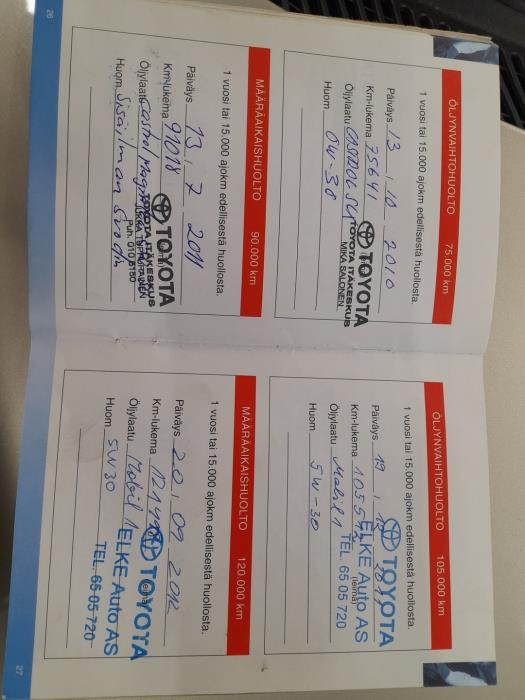 ÖLJYNVAIHTOHUOLTO 75.000 km
1 vuosi tai 15.000 ajokm edellisestä huollosta.
Päiväys 13 . 10 2010
Km-lukema 75641
Öljylaatu CASTROL
Huom 0W-30
TOYOTA
TOYOTA ITÄKESKUS
MIKA SALONEN
MÄÄRÄAIKAISHUOLTO 90.000 km
1 vuosi tai 15.000 ajokm edellisestä huollosta.
Päiväys 13 . 7 2011
Km-lukema 91018
Öljylaatu Castrol
Huom Sisäilman Suod
TOYOTA
TOYOTA ITÄKESKUS
Puh. 010 8150
26
ÖLJYNVAIHTOHUOLTO 105.000 km
1 vuosi tai 15.000 ajokm edellisestä huollosta.
Päiväys 19
Km-lukema
Öljylaatu Mobil 1
Huom 5W-30
TOYOTA
ELKE Auto AS
(leima)
TEL. 65 05 720
MÄÄRÄAIKAISHUOLTO 120.000 km
1 vuosi tai 15.000 ajokm edellisestä huollosta.
Päiväys 20 . 09 2012
Km-lukema
Öljylaatu Mobil 1
Huom 5W30
TOYOTA
ELKE Auto AS
TEL. 65 05 720
27